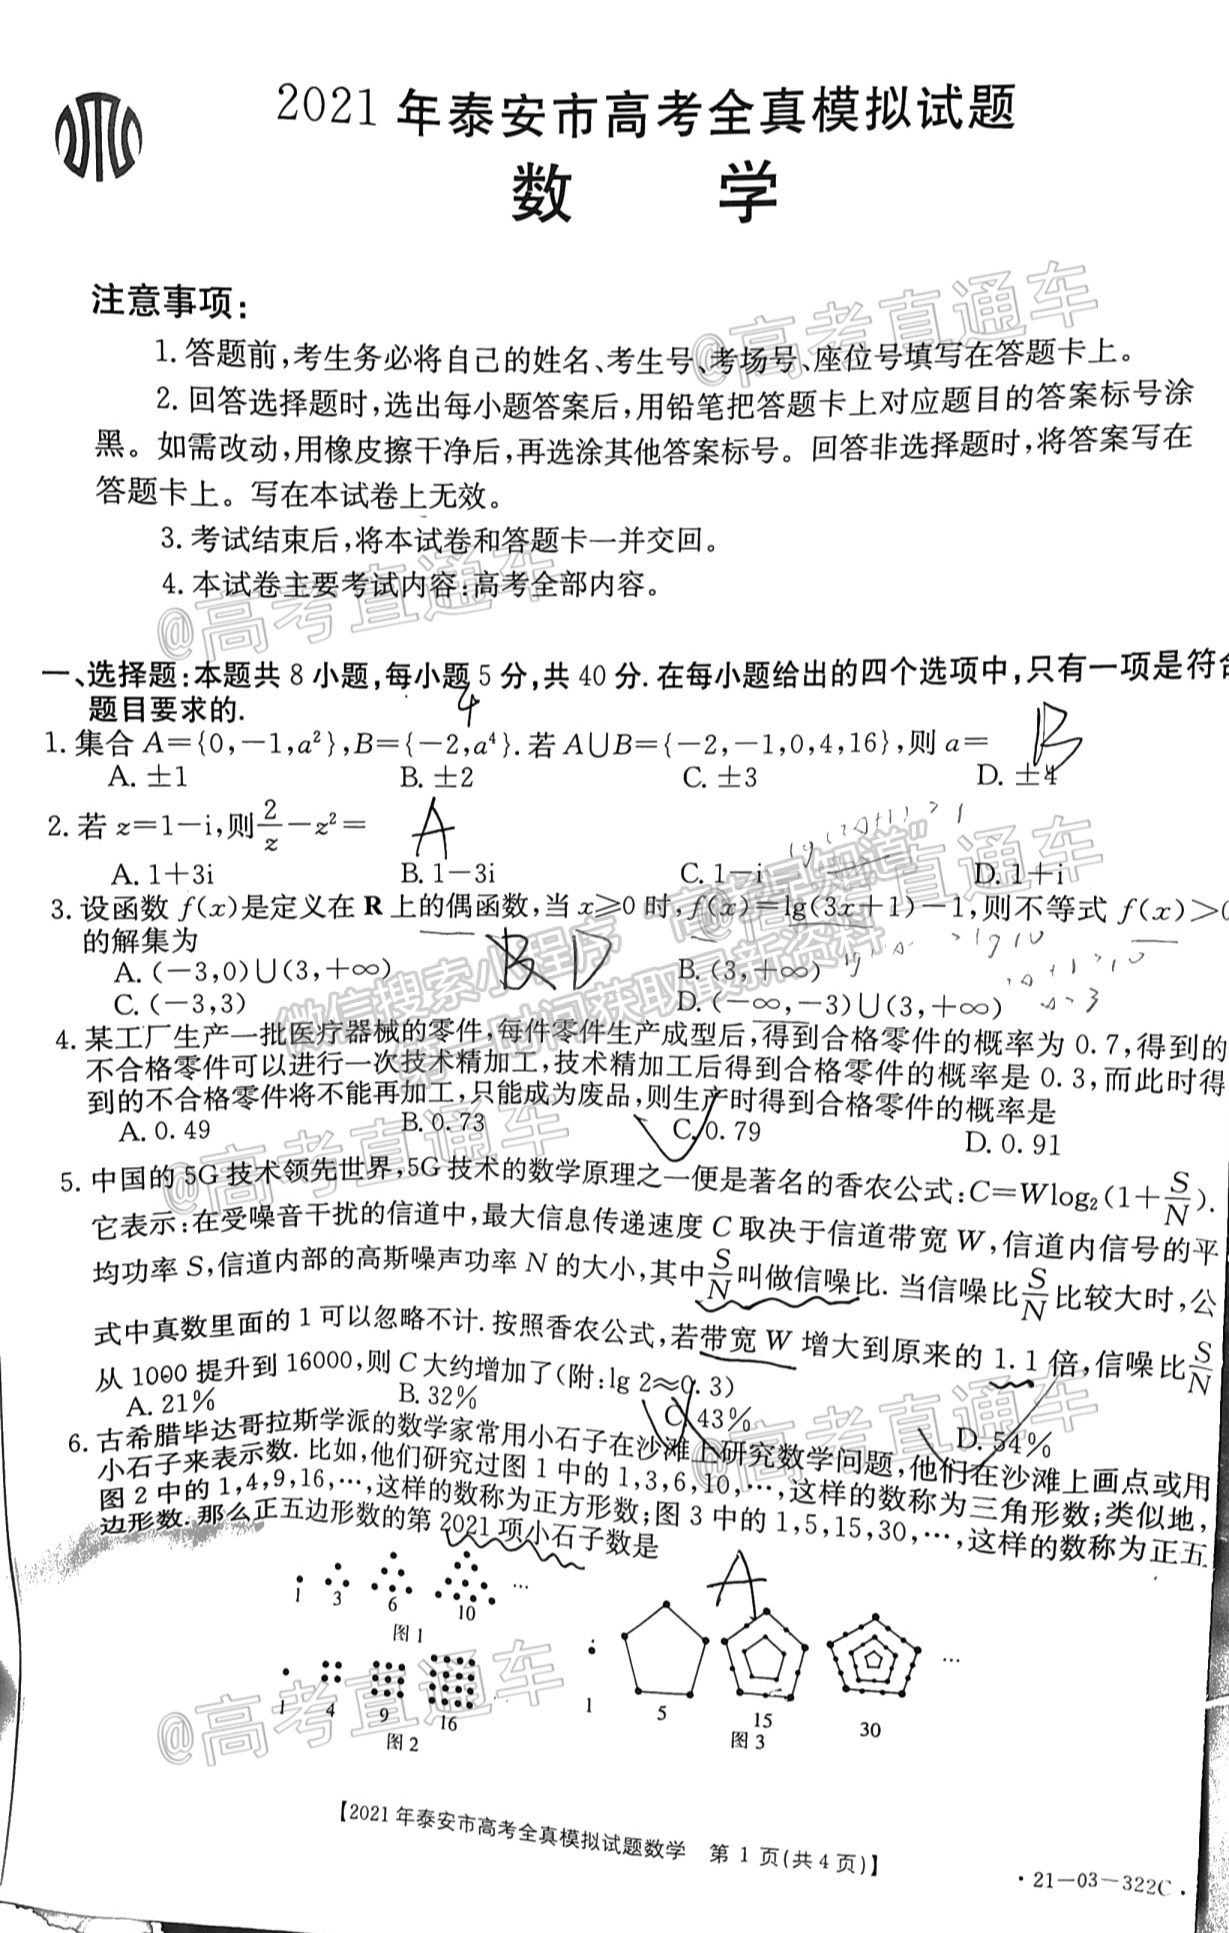 2021年泰安市高考全真模拟试题
数 学
注意事项:
1.答题前,考生务必将自己的姓名、考生号、考场号、座位号填写在答题卡上。
2.回答选择题时,选出每小题答案后,用铅笔把答题卡上对应题目的答案标号涂
黑。如需改动,用橡皮擦干净后,再选涂其他答案标号。回答非选择题时,将答案写在
答题卡上。写在本试卷上无效。
3.考试结束后,将本试卷和答题卡一并交回。
4.本试卷主要考试内容:高考全部内容。
@高考直通车
一、选择题:本题共8小题,每小题5分,共40分.在每小题给出的四个选项中,只有一项是符合
题目要求的.
4
1.集合A={0,-1,a²},B={-2,a⁴}.若A∪B={-2,-1,0,4,16},则a= B
A.±1 B.±2 C.±3 D.±4
2.若z=1-i,则2/z-z²= A
A.1+3i B.1-3i C.1-i D.1+i
3.设函数f(x)是定义在R上的偶函数,当x≥0时,f(x)=lg(3x+1)-1,则不等式f(x)>0
的解集为 D
A.(-3,0)∪(3,+∞) B.(3,+∞)
C.(-3,3) D.(-∞,-3)∪(3,+∞)
微信搜索小程序"高考早知道"
第一时间获取最新资料
4.某工厂生产一批医疗器械的零件,每件零件生产成型后,得到合格零件的概率为0.7,得到的
不合格零件可以进行一次技术精加工,技术精加工后得到合格零件的概率是0.3,而此时得
到的不合格零件将不能再加工,只能成为废品,则生产时得到合格零件的概率是
A.0.49 B.0.73 C.0.79 D.0.91
5.中国的5G技术领先世界,5G技术的数学原理之一便是著名的香农公式:C=Wlog₂(1+S/N).
它表示:在受噪音干扰的信道中,最大信息传递速度C取决于信道带宽W,信道内信号的平
均功率S,信道内部的高斯噪声功率N的大小,其中S/N叫做信噪比.当信噪比S/N比较大时,公
式中真数里面的1可以忽略不计.按照香农公式,若带宽W增大到原来的1.1倍,信噪比S/N
从1000提升到16000,则C大约增加了(附:lg 2≈0.3)
A.21% B.32% C.43% D.54%
6.古希腊毕达哥拉斯学派的数学家常用小石子在沙滩上研究数学问题,他们在沙滩上画点或用
小石子来表示数.比如,他们研究过图1中的1,3,6,10,…,这样的数称为三角形数;类似地,
图2中的1,4,9,16,…,这样的数称为正方形数;图3中的1,5,15,30,…,这样的数称为正五
边形数.那么正五边形数的第2021项小石子数是
A
1 3 6 10 …
图1
1 4 9 16
图2
1 5 15 30 …
图3
@高考直通车
【2021年泰安市高考全真模拟试题数学 第1页(共4页)】
·21-03-322C·